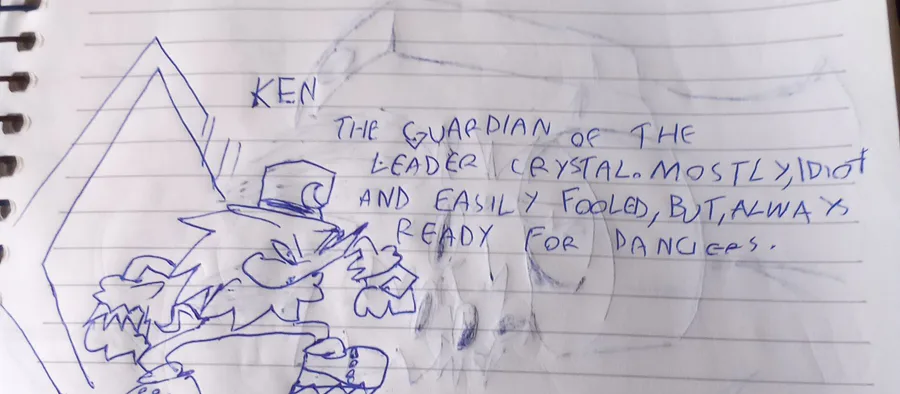 KEN
THE GUARDIAN OF THE
LEADER CRYSTAL. MOSTLY, IDIOT
AND EASILY FOOLED, BUT, ALWAYS
READY FOR DANGERS.